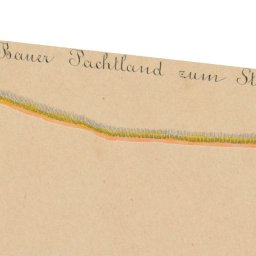 Bauer Pachtland zum St